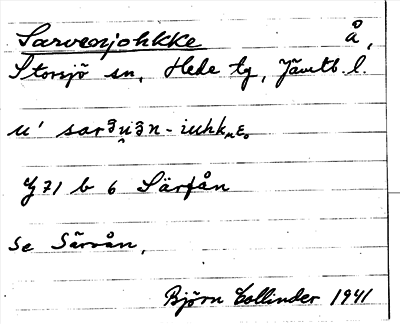 Sarvesjohkke å,
Storsjö sn, Hede tg, Jämtl. l.
Y 71 b 6 Särfån
se Särvån,
Björn Collinder 1941